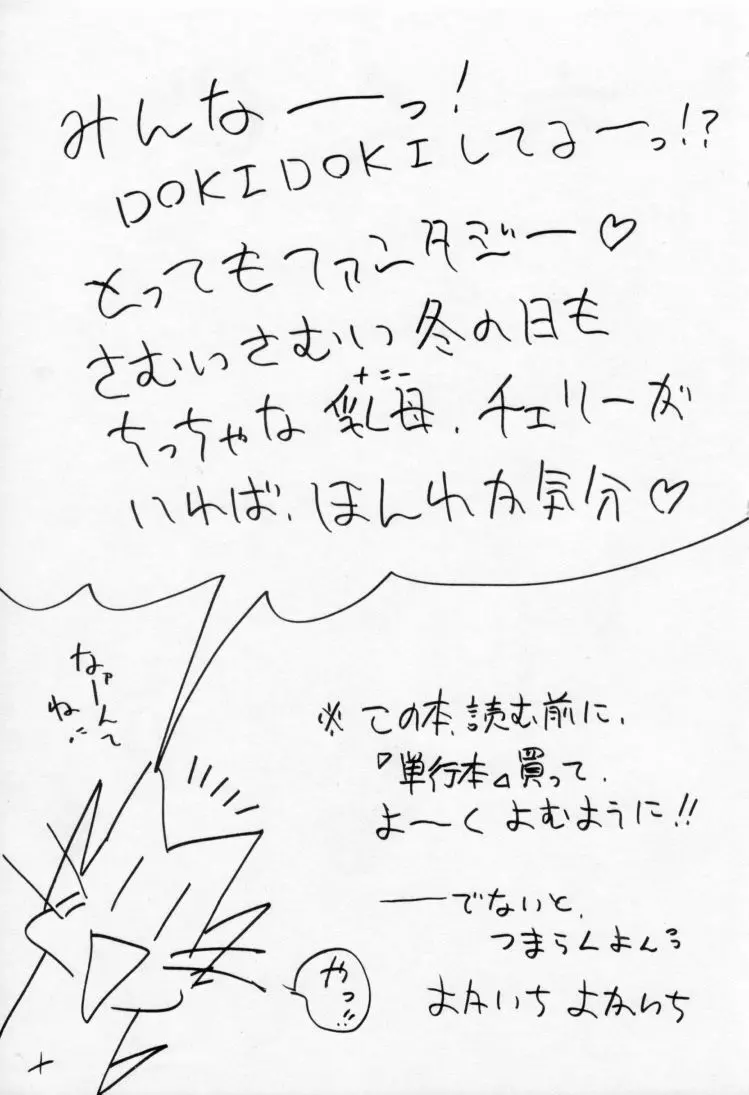 みんなーっ!
DOKIDOKIしてるーっ!?
とってもファンタジー♡
さむいさむい冬の日も
ちっちゃな乳母、チェリーが
ナニー
いれば、ほんわかな気分♡
なァーんて
ね!!
※この本、読む前に、
『単行本』買って、
よ〜くよむように!!
――でないと、
つまらんよん
よかいち よかいち
やっ!!